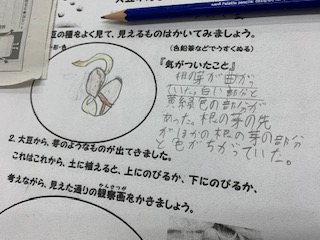 大豆
豆の種をよく見て、見えるものはかいてみましょう。
形・色
(色鉛筆などでうすくぬる)
『気がついたこと』
根の芽が曲がっ
ていた。白い部分と
黄緑色の部分が
あった。根の芽の先
がほかの根の芽の部分
と色がちがっていた。
2. 大豆から、芽のようなものが出てきました。
これはこれから、土に植えると、上にのびるか、下にのびるか、
考えながら、見えた通りの観察画をかきましょう。
かんさつが